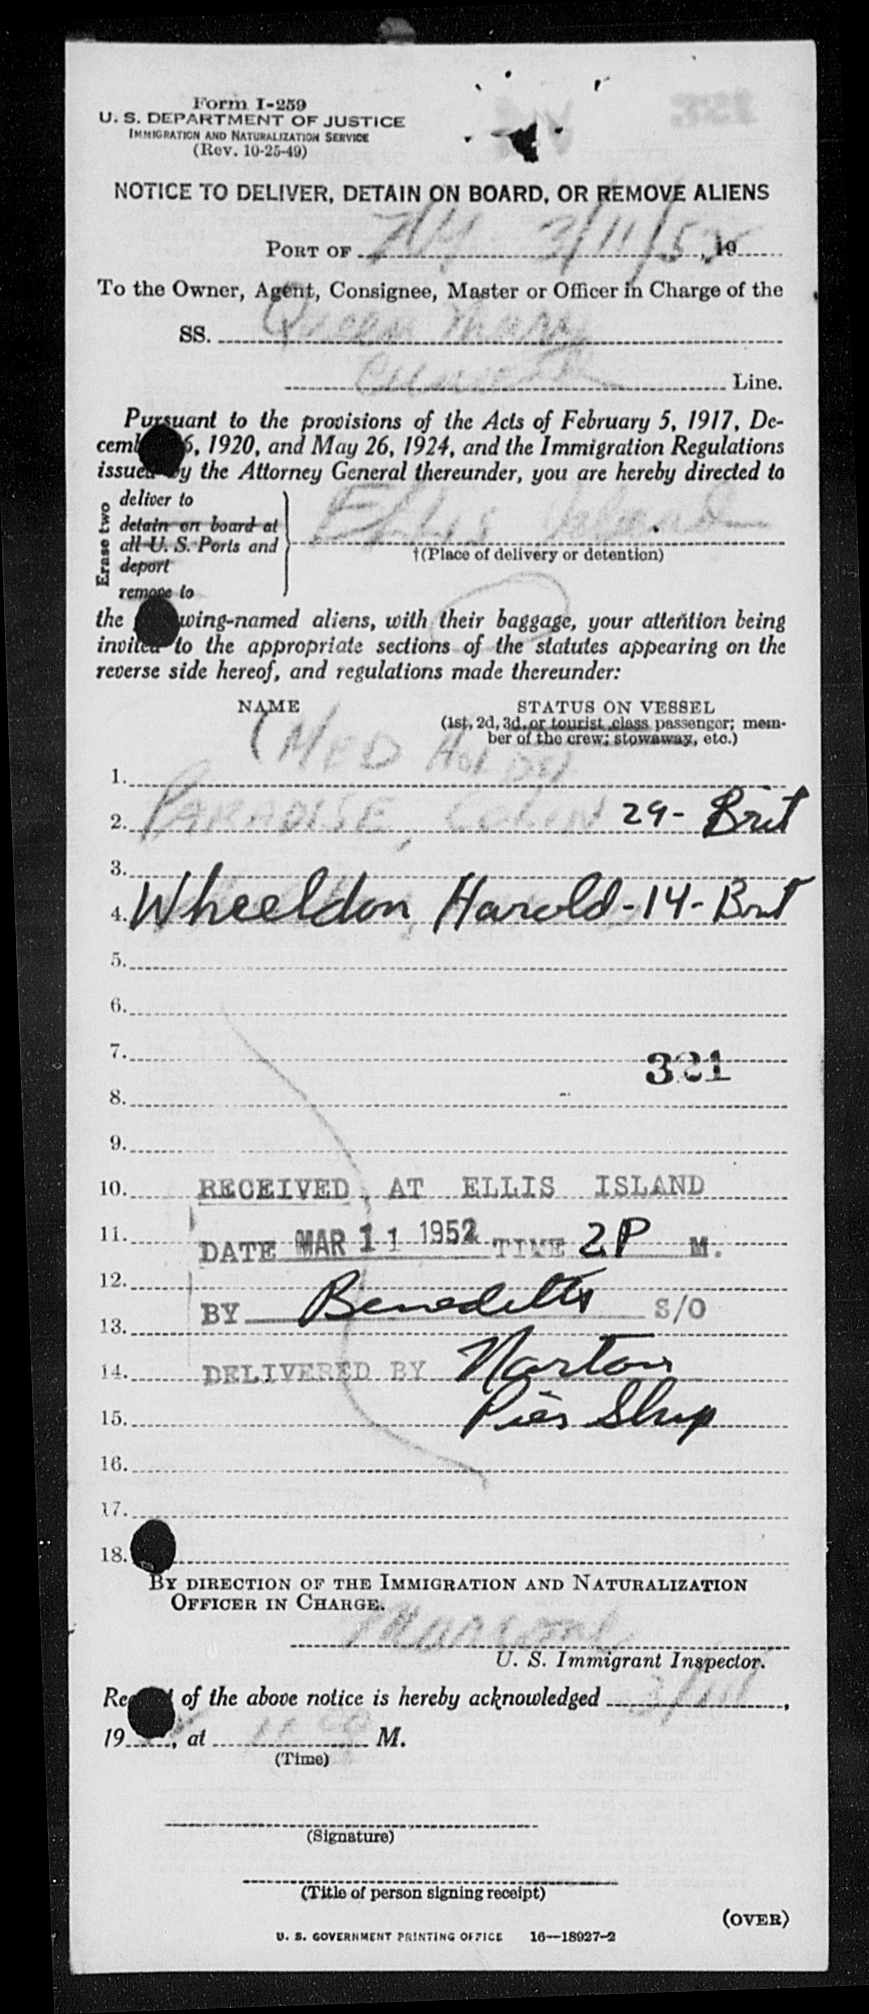 Form I-259
U. S. DEPARTMENT OF JUSTICE
IMMIGRATION AND NATURALIZATION SERVICE
(Rev. 10-25-49)
NOTICE TO DELIVER, DETAIN ON BOARD, OR REMOVE ALIENS
PORT OF NY 3/11/52, 19
To the Owner, Agent, Consignee, Master or Officer in Charge of the
SS. Queen Mary
Line.
Pursuant to the provisions of the Acts of February 5, 1917, De-
cemb 6, 1920, and May 26, 1924, and the Immigration Regulations
issued by the Attorney General thereunder, you are hereby directed to
Erase two
deliver to
detain on board at
all U. S. Ports and
deport
remove to
Ellis Island
†(Place of delivery or detention)
the wing-named aliens, with their baggage, your attention being
invited to the appropriate sections of the statutes appearing on the
reverse side hereof, and regulations made thereunder:
NAME STATUS ON VESSEL
(1st, 2d, 3d, or tourist class passenger; mem-
ber of the crew; stowaway, etc.)
(MED HOLD)
1.
2. PARADISE, COLIN 29- Brit
3.
4. Wheeldon, Harold-14-Brit
5.
6.
7. 321
8.
9.
10. RECEIVED AT ELLIS ISLAND
11. DATE MAR 11 1952 TIME 2P M.
12.
13. BY Benedetto S/O
14. DELIVERED BY Norton
15. Pier
16.
17.
18.
BY DIRECTION OF THE IMMIGRATION AND NATURALIZATION
OFFICER IN CHARGE.
U. S. Immigrant Inspector.
Re of the above notice is hereby acknowledged 3/11,
19, at M.
(Time)
(Signature)
(Title of person signing receipt)
(OVER)
U. S. GOVERNMENT PRINTING OFFICE 16—18927-2